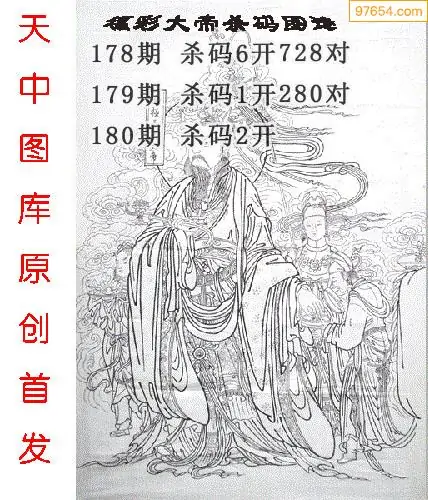 97654.com
彩大帝杀码图
178期 杀码6开728对
179期 杀码1开280对
180期 杀码2开
天中图库原创首发